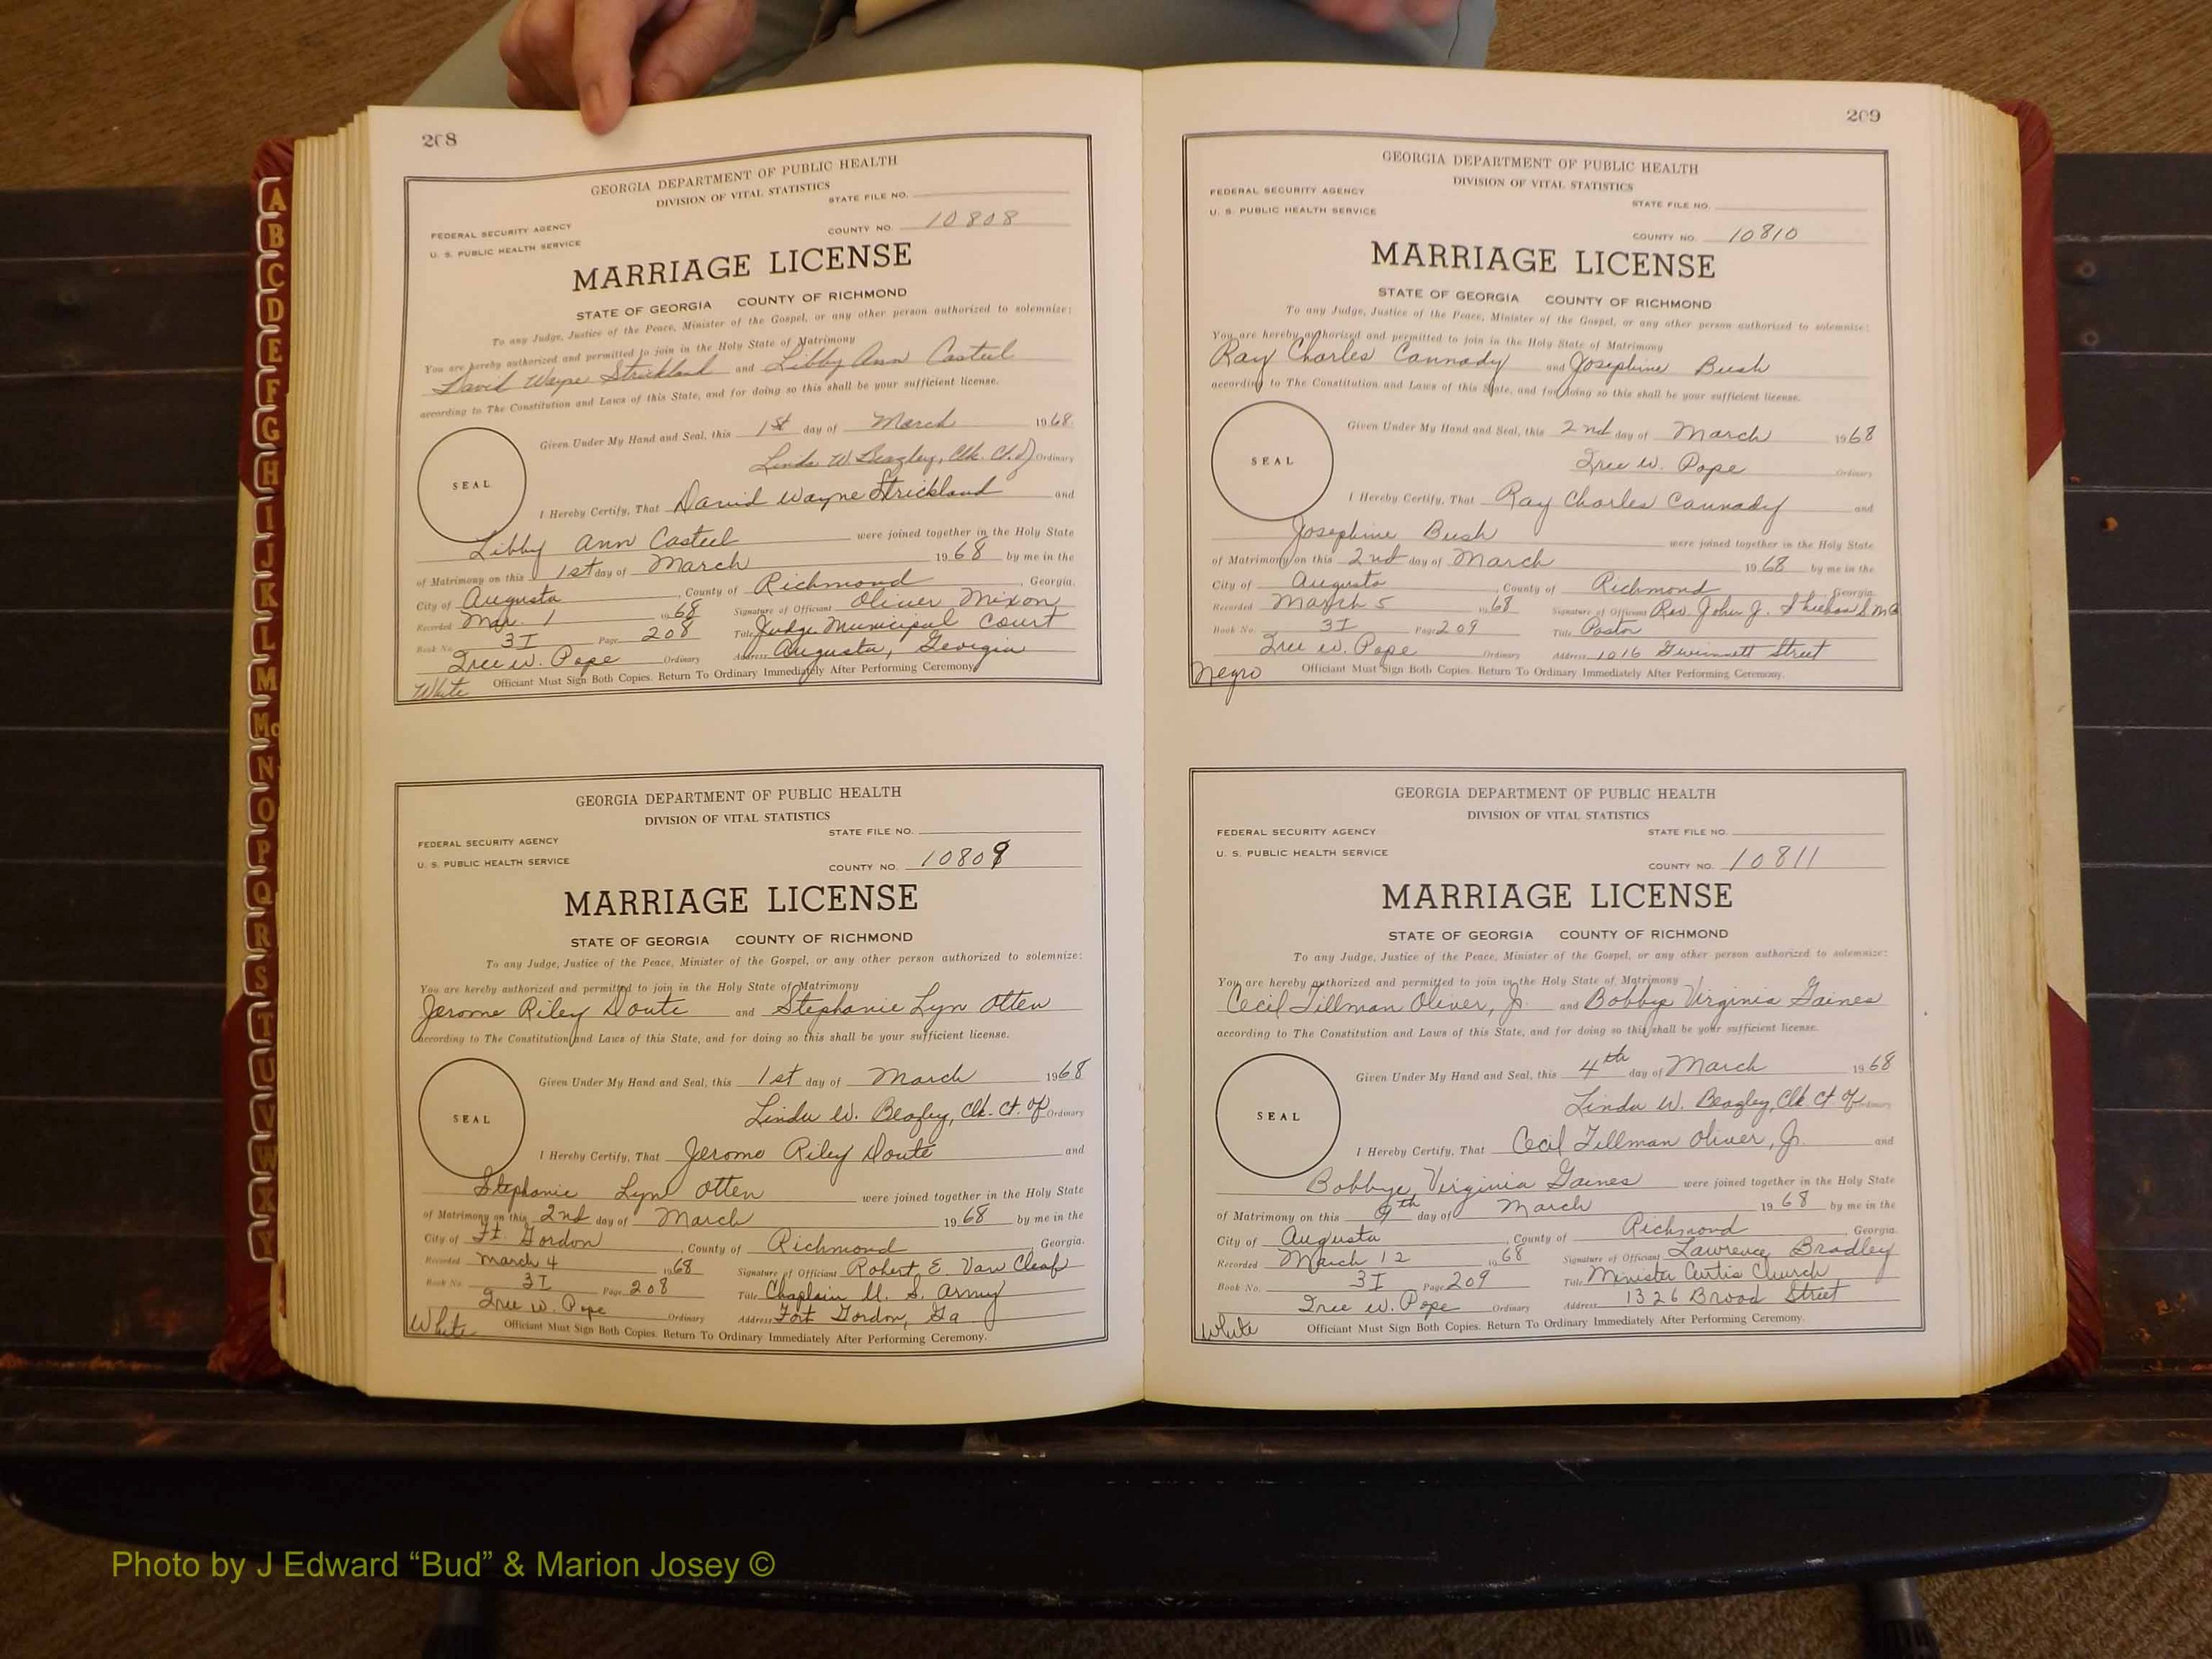 208
GEORGIA DEPARTMENT OF PUBLIC HEALTH
DIVISION OF VITAL STATISTICS
STATE FILE NO.
FEDERAL SECURITY AGENCY
U. S. PUBLIC HEALTH SERVICE
COUNTY NO. 10808
MARRIAGE LICENSE
STATE OF GEORGIA COUNTY OF RICHMOND
To any Judge, Justice of the Peace, Minister of the Gospel, or any other person authorized to solemnize:
You are hereby authorized and permitted to join in the Holy State of Matrimony
David Wayne Strickland and Libby Ann Casteel
according to The Constitution and Laws of this State, and for doing so this shall be your sufficient license.
Given Under My Hand and Seal, this 1st day of March 1968
Linda W. Beazley, Clk. Ct. of Ordinary
SEAL
I Hereby Certify, That David Wayne Strickland and
Libby Ann Casteel were joined together in the Holy State
of Matrimony on this 1st day of March 1968 by me in the
City of Augusta, County of Richmond, Georgia.
Recorded Mar. 1 1968 Signature of Officiant Oliver Mixon
Book No. 3I Page 208 Title Judge Municipal Court
Iree W. Pope Ordinary Address Augusta, Georgia
White Officiant Must Sign Both Copies. Return To Ordinary Immediately After Performing Ceremony.
GEORGIA DEPARTMENT OF PUBLIC HEALTH
DIVISION OF VITAL STATISTICS
STATE FILE NO.
FEDERAL SECURITY AGENCY
U. S. PUBLIC HEALTH SERVICE
COUNTY NO. 10809
MARRIAGE LICENSE
STATE OF GEORGIA COUNTY OF RICHMOND
To any Judge, Justice of the Peace, Minister of the Gospel, or any other person authorized to solemnize:
You are hereby authorized and permitted to join in the Holy State of Matrimony
Jerome Riley Doute and Stephanie Lyn Otten
according to The Constitution and Laws of this State, and for doing so this shall be your sufficient license.
Given Under My Hand and Seal, this 1st day of March 1968
Linda W. Beazley, Clk. Ct. of Ordinary
SEAL
I Hereby Certify, That Jerome Riley Doute and
Stephanie Lyn Otten were joined together in the Holy State
of Matrimony on this 2nd day of March 1968 by me in the
City of Ft. Gordon, County of Richmond, Georgia.
Recorded March 4 1968 Signature of Officiant Robert E. Van Cleaf
Book No. 3I Page 208 Title Chaplain U. S. Army
Iree W. Pope Ordinary Address Fort Gordon, Ga
White Officiant Must Sign Both Copies. Return To Ordinary Immediately After Performing Ceremony.
209
GEORGIA DEPARTMENT OF PUBLIC HEALTH
DIVISION OF VITAL STATISTICS
FEDERAL SECURITY AGENCY
STATE FILE NO.
U. S. PUBLIC HEALTH SERVICE
COUNTY NO. 10810
MARRIAGE LICENSE
STATE OF GEORGIA COUNTY OF RICHMOND
To any Judge, Justice of the Peace, Minister of the Gospel, or any other person authorized to solemnize:
You are hereby authorized and permitted to join in the Holy State of Matrimony
Ray Charles Cannady and Josephine Bush
according to The Constitution and Laws of this State, and for doing so this shall be your sufficient license.
Given Under My Hand and Seal, this 2nd day of March 1968
Iree W. Pope Ordinary
SEAL
I Hereby Certify, That Ray Charles Cannady and
Josephine Bush were joined together in the Holy State
of Matrimony on this 2nd day of March 1968 by me in the
City of Augusta, County of Richmond, Georgia
Recorded March 5 1968 Signature of Officiant Rev. John J.
Book No. 3I Page 209 Title Pastor
Iree W. Pope Ordinary Address 1016 Gwinnett Street
Negro Officiant Must Sign Both Copies. Return To Ordinary Immediately After Performing Ceremony.
GEORGIA DEPARTMENT OF PUBLIC HEALTH
DIVISION OF VITAL STATISTICS
FEDERAL SECURITY AGENCY
STATE FILE NO.
U. S. PUBLIC HEALTH SERVICE
COUNTY NO. 10811
MARRIAGE LICENSE
STATE OF GEORGIA COUNTY OF RICHMOND
To any Judge, Justice of the Peace, Minister of the Gospel, or any other person authorized to solemnize:
You are hereby authorized and permitted to join in the Holy State of Matrimony
Cecil Tillman Oliver, Jr. and Bobbye Virginia Gaines
according to The Constitution and Laws of this State, and for doing so this shall be your sufficient license.
Given Under My Hand and Seal, this 4th day of March 1968
Linda W. Beazley, Clk Ct of Ordinary
SEAL
I Hereby Certify, That Cecil Tillman Oliver, Jr. and
Bobbye Virginia Gaines were joined together in the Holy State
of Matrimony on this 9th day of March 1968 by me in the
City of Augusta, County of Richmond, Georgia.
Recorded March 12 1968 Signature of Officiant Lawrence Bradley
Book No. 3I Page 209 Title Minister Curtis Church
Iree W. Pope Ordinary Address 1326 Broad Street
White Officiant Must Sign Both Copies. Return To Ordinary Immediately After Performing Ceremony.
A
B
C
D
E
F
G
H
I
J
K
L
M
Mc
N
O
P
Q
R
S
T
U
V
W
X
Y
Photo by J Edward “Bud” & Marion Josey ©